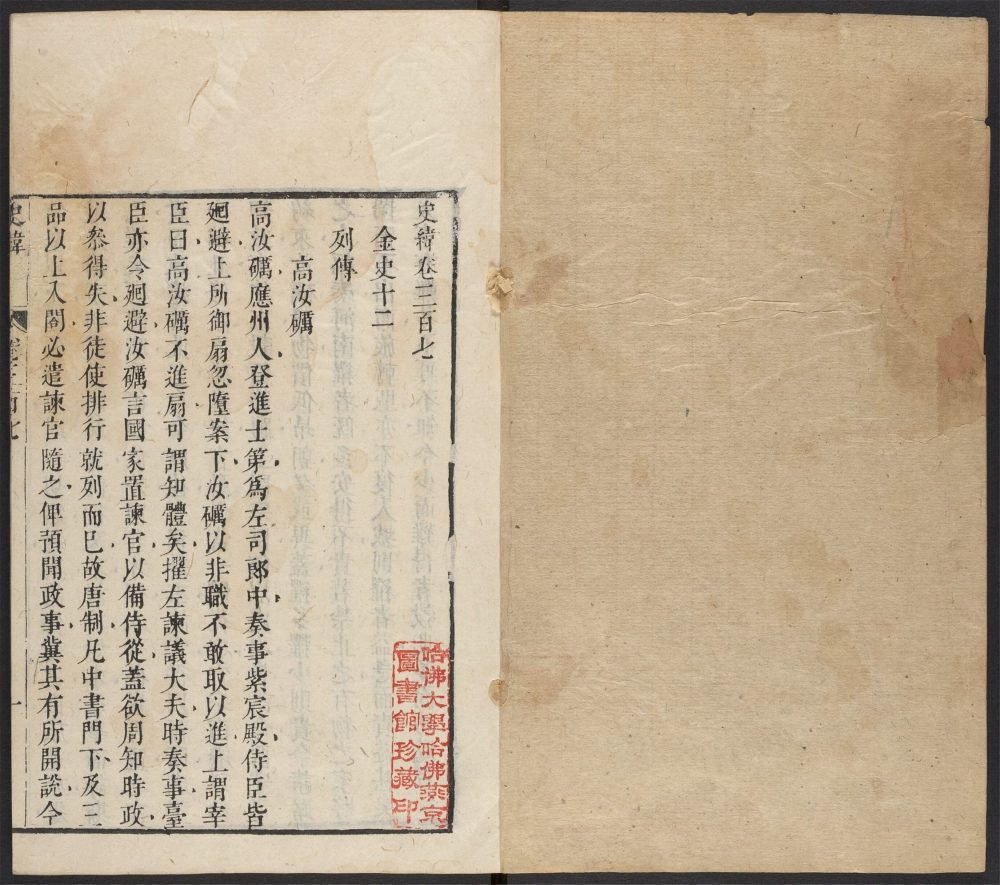 史緯卷三百七
金史十二
列傳
高汝礪
高汝礪應州人登進士第為左司郎中奏事紫宸殿侍臣皆
廻避上所御扇忽墮案下汝礪以非職不敢取以進上謂宰
臣曰高汝礪不進扇可謂知體矣擢左諫議大夫時奏事臺
臣亦令廻避汝礪言國家置諫官以備侍從蓋欲周知時政
以叅得失非徒使排行就列而已故唐制凡中書門下及三
品以上入閤必遣諫官隨之俾預聞政事冀其有所開說今
史緯
卷三百七
一
哈佛大學哈佛燕京
圖書館珍藏印